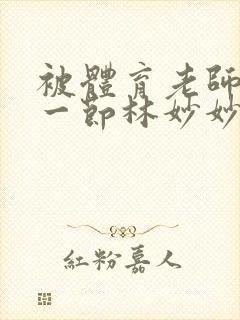 被體育老師
一節林妙妙
紅粉嘉人